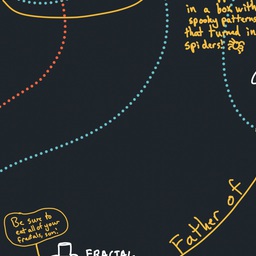 in a box with
spooky patterns
that turned in
spiders!
Father of
Be sure to
eat all of your
fractals, son!
FRACTAL